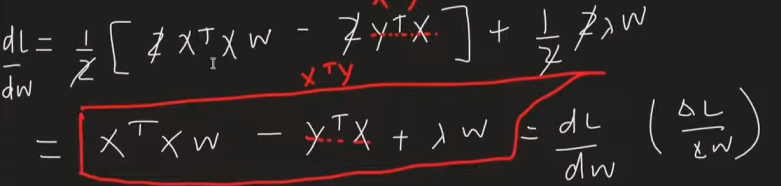 dL/dw = 1/2 [ 2 X^T X w - 2 y^T X ] + 1/2 2 λ w
X^T y
= X^T X w - y^T X + λ w = dL/dw (ΔL/ w)